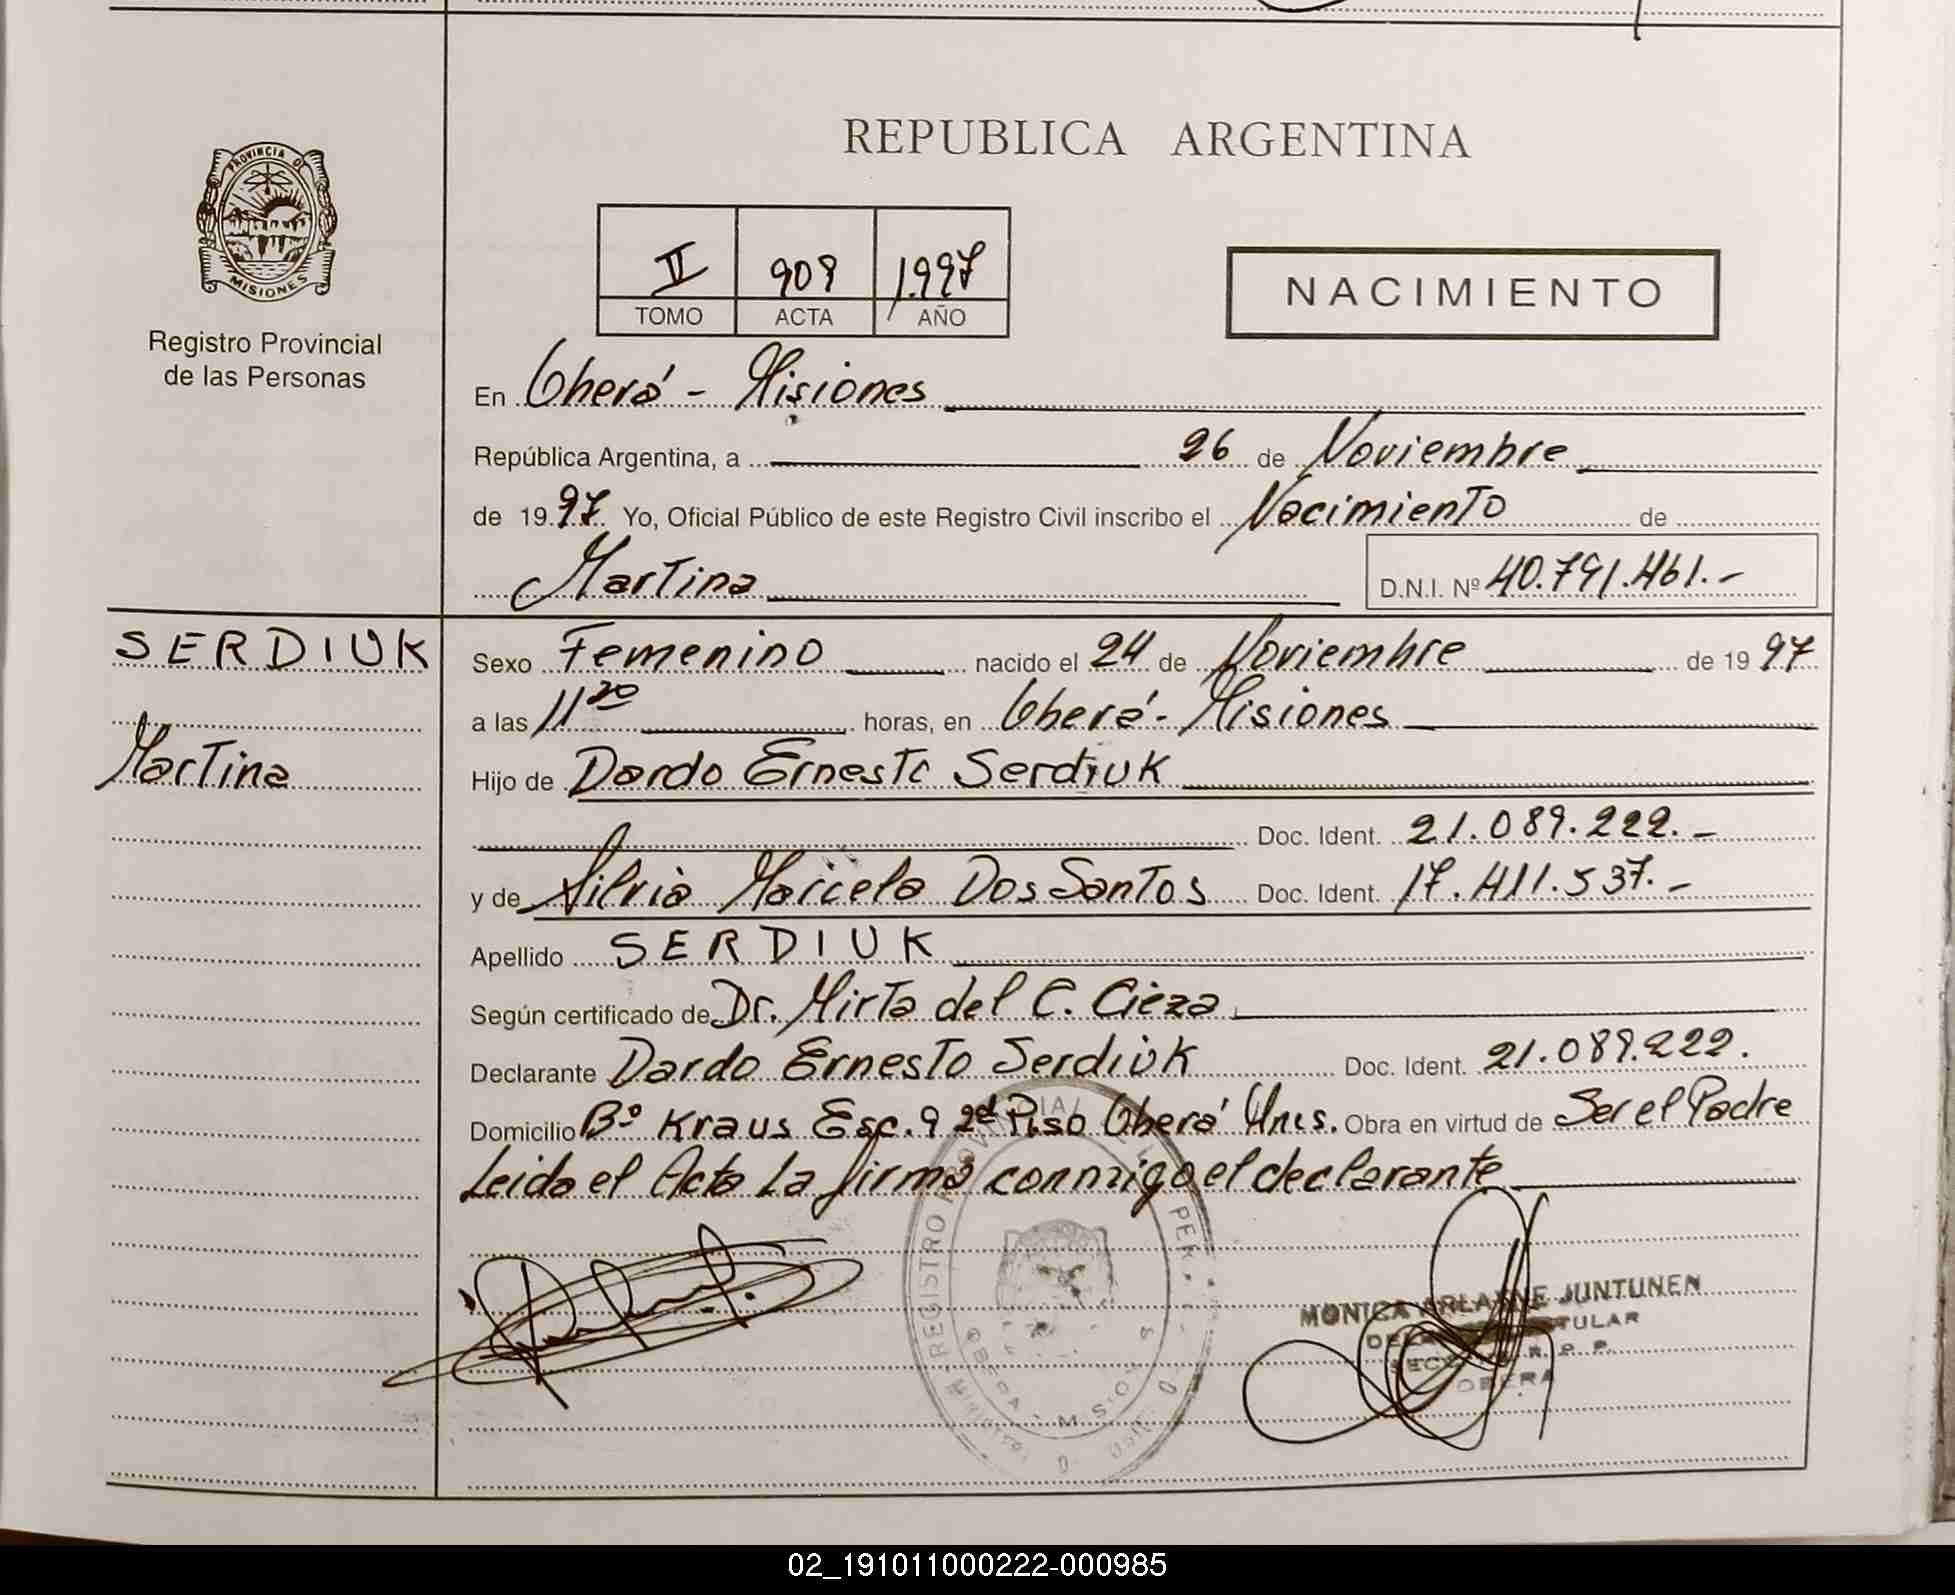 REPUBLICA ARGENTINA
PROVINCIA DE
MISIONES
Registro Provincial
de las Personas
II 909 1.997
TOMO ACTA AÑO
NACIMIENTO
En Oberá - Misiones
República Argentina, a 26 de Noviembre
de 1997. Yo, Oficial Público de este Registro Civil inscribo el Nacimiento de
Martina D.N.I. Nº 40.791.461.-
SERDIUK
Martina
Sexo Femenino nacido el 24 de Noviembre de 1997
a las 11 20 horas, en Oberá - Misiones
Hijo de Dardo Ernesto Serdiuk
Doc. Ident. 21.089.222.-
y de Silvia Marcela Dos Santos Doc. Ident. 17.411.537.-
Apellido SERDIUK
Según certificado de Dr. Mirta del C. Cieza
Declarante Dardo Ernesto Serdiuk Doc. Ident. 21.089.222.
Domicilio Bº Kraus Esc. 9 2d Piso Oberá Mnes. Obra en virtud de Ser el Padre
Leida el Acta La firma conmigo el declarante
MONICA ARLAINE JUNTUNEN
TULAR
OBERA
REGISTRO
02_191011000222-000985